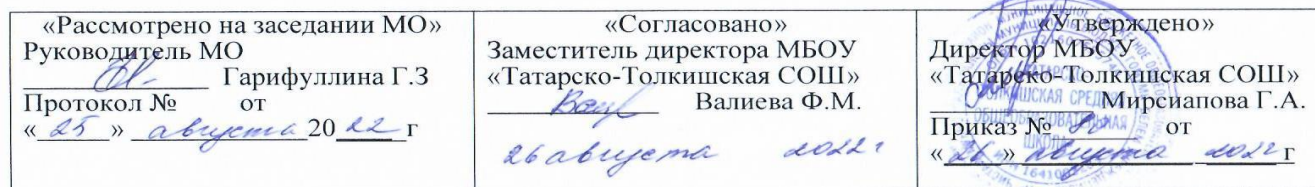 «Рассмотрено на заседании МО»
Руководитель МО
Гарифуллина Г.З
Протокол № от
«25» августа 2022 г
«Согласовано»
Заместитель директора МБОУ
«Татарско-Толкишская СОШ»
Валиева Ф.М.
26 августа 2022 г
«Утверждено»
Директор МБОУ
«Татарско-Толкишская СОШ»
Мирсиапова Г.А.
Приказ № от
«26» августа 2022 г